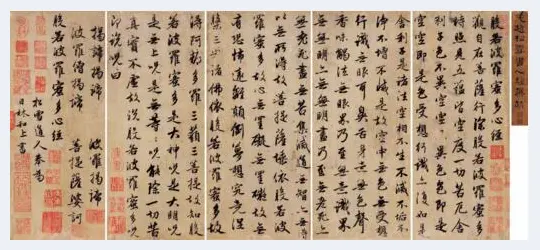 般若波羅蜜多心經
觀自在菩薩行深般若波羅蜜多
時照見五蘊皆空度一切苦厄舍
利子色不異空空不異色色即是
空空即是色受想行識亦復如是
舍利子是諸法空相不生不滅不垢不
淨不增不減是故空中無色無受想
行識無眼耳鼻舌身意無色聲
香味觸法無眼界乃至無意識界
無無明亦無無明盡乃至無老死亦
無老死盡無苦集滅道無智亦無得
以無所得故菩提薩埵依般若波
羅蜜多故心無罣礙無罣礙故無
有恐怖遠離顛倒夢想究竟涅
槃三世諸佛依般若波羅蜜多故
得阿耨多羅三藐三菩提故知般
若波羅蜜多是大神咒是大明咒
是無上咒是無等等咒能除一切苦
真實不虛故說般若波羅蜜多咒
即說咒曰
揭諦揭諦 波羅揭諦
波羅僧揭諦 菩提薩婆訶
般若波羅蜜多心經
松雪道人奉為
日林和上書